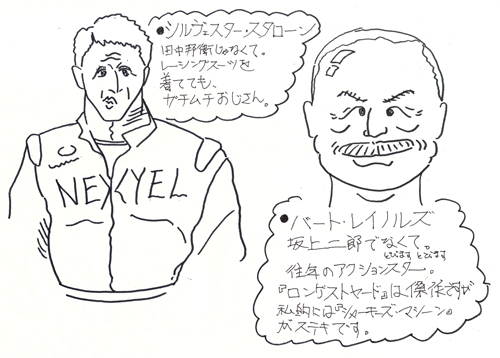 ●シルヴェスター・スタローン
田中邦衛じゃなくて。
レーシングスーツを
着てても、
ガチムチおじさん。
NEXYEL
●バート・レイノルズ
坂上二郎でなくて。
とびます とびます
往年のアクションスター。
『ロンゲストヤード』は傑作ですが
私的には『シャーキーズ・マシーン』
がステキです。